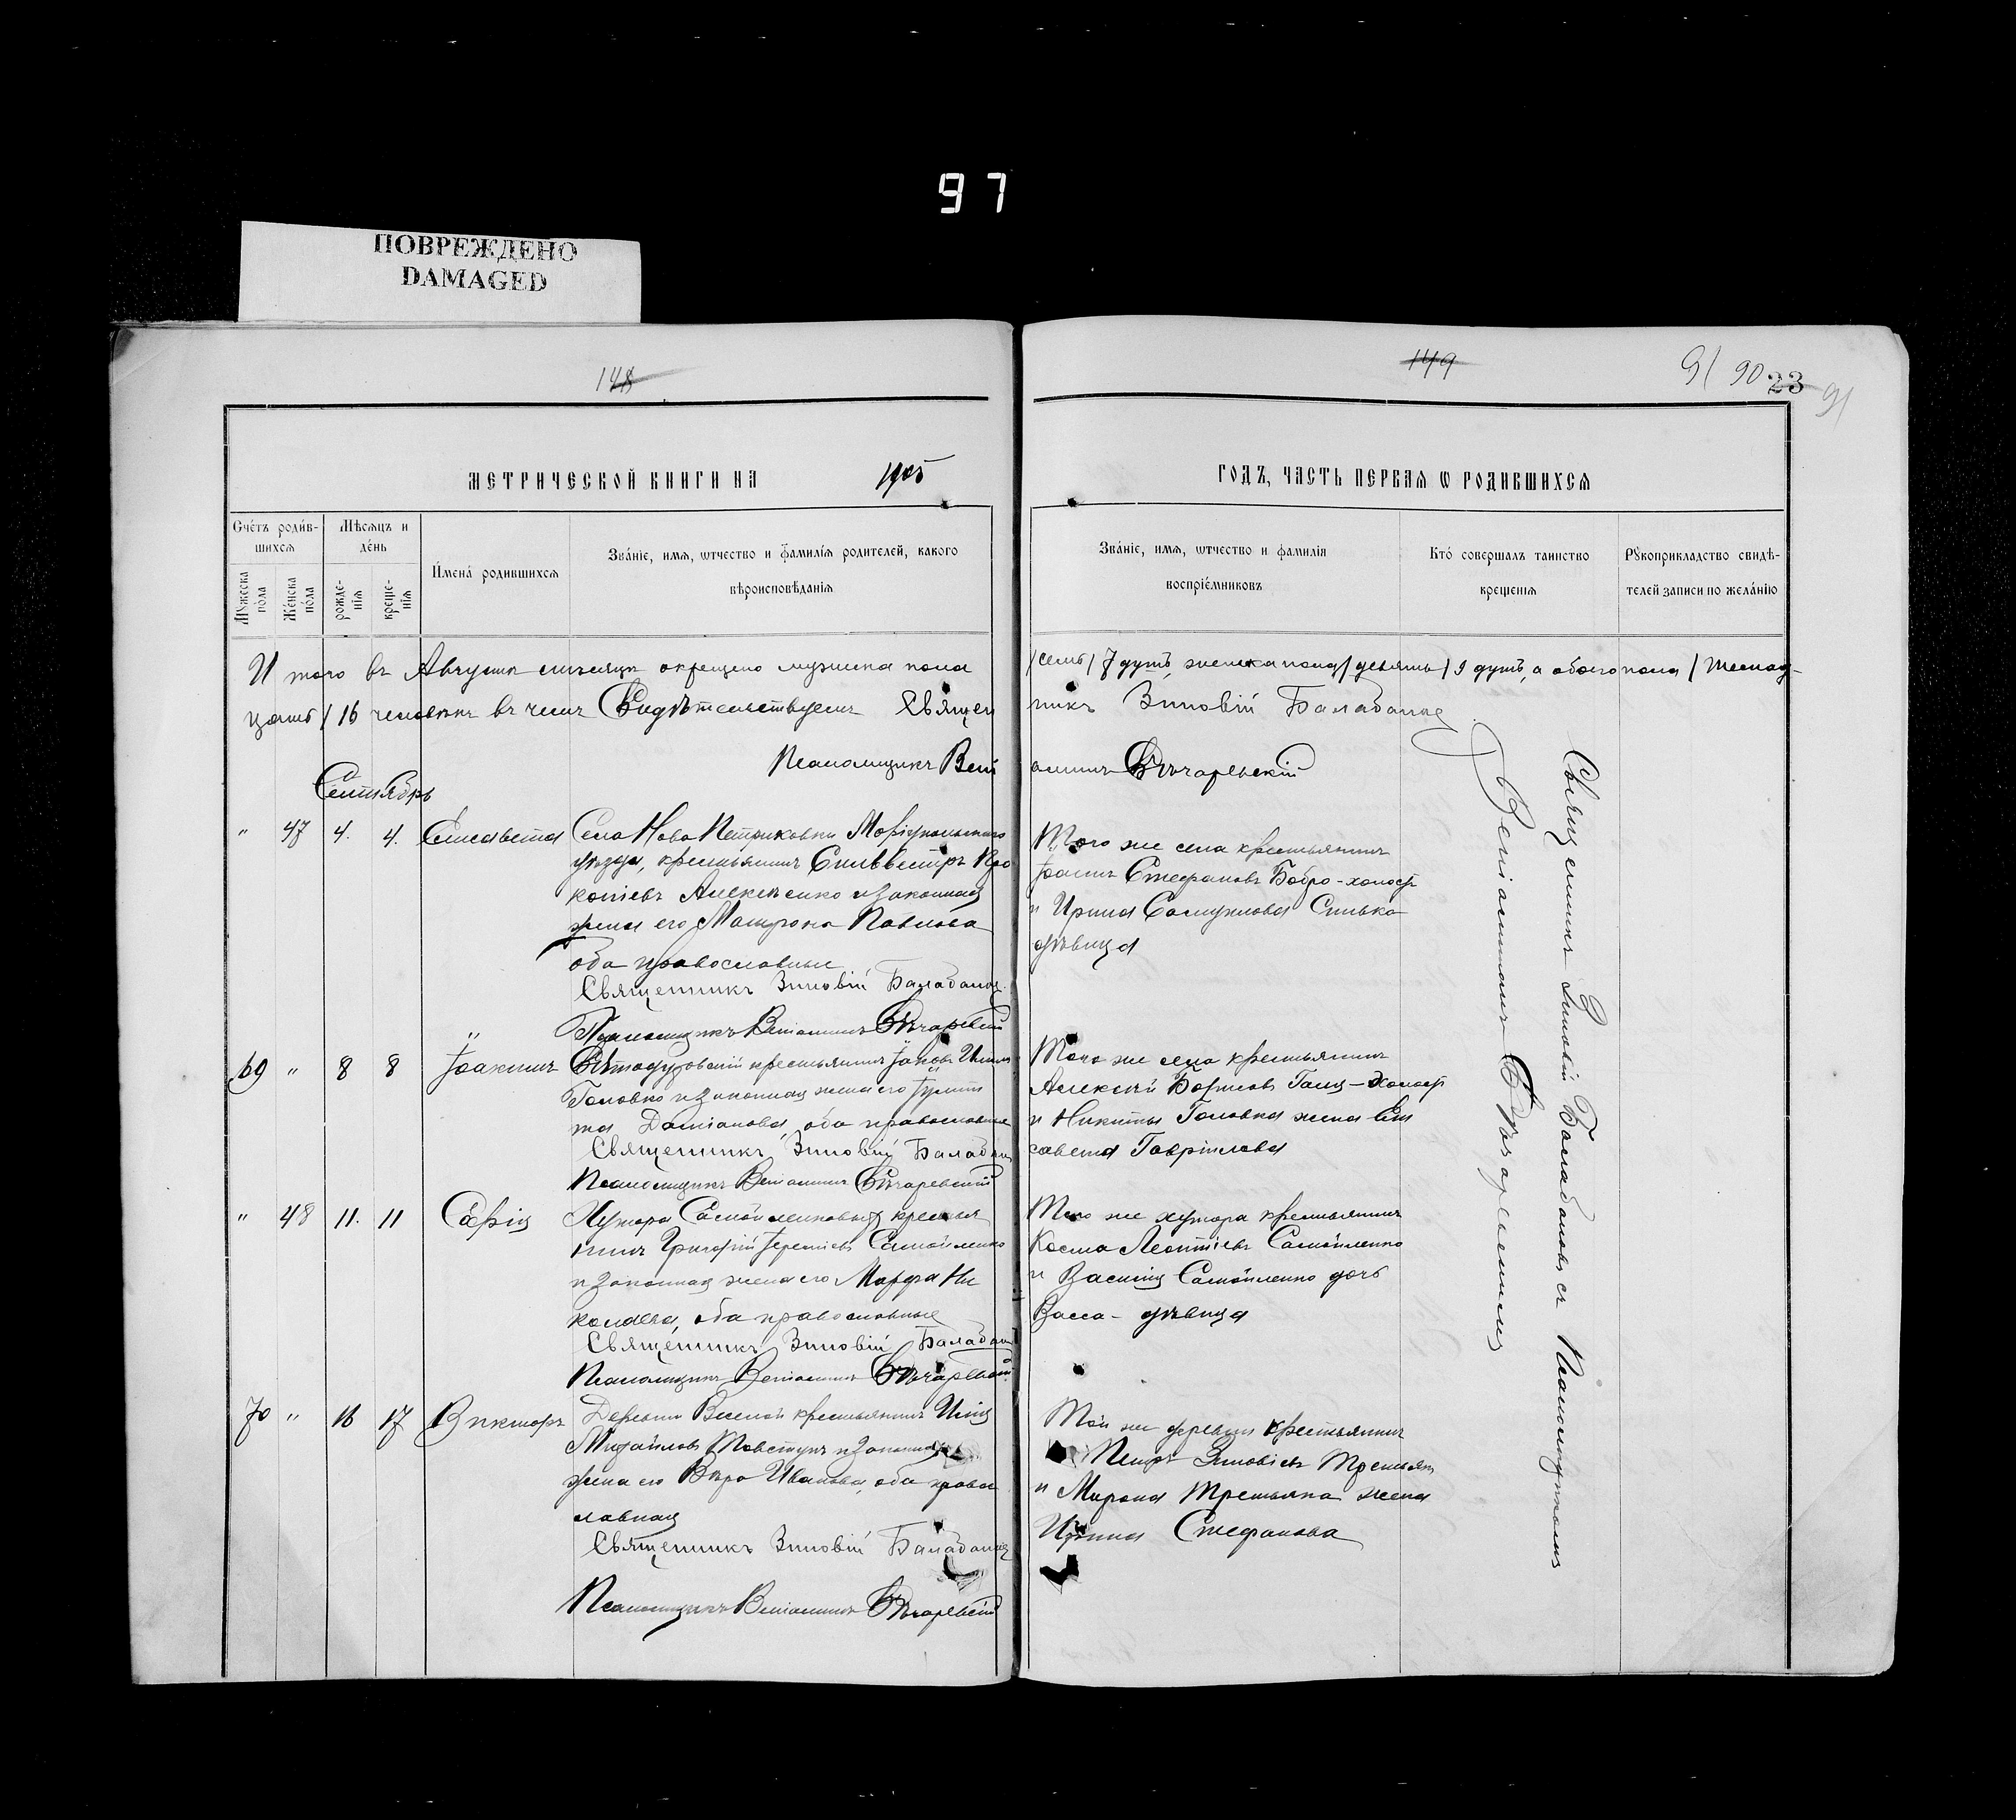 97
ПОВРЕЖДЕНО
DAMAGED
148
149
91 90 23 91
МЕТРИЧЕСКОЙ КНИГИ НА 1905
ГОДЪ, ЧАСТЬ ПЕРВАЯ Ѡ РОДИВШИХСЯ
Счетъ родив-
шихся
Мѣсяцъ и
день
Имена родившихся
Званіе, имя, ѡтчество и фамилія родителей, какого
вѣроисповѣданія
Мужеска
пола
Женска
пола
рожде-
нія
креще-
нія
Званіе, имя, ѡтчество и фамилія
воспріемниковъ
Кто совершалъ таинство
крещенія
Рукоприкладство свидѣ-
телей записи по желанію
И того въ Августѣ мѣсяцѣ окрещено мужеска пола
/семь/ 7 душъ, женска пола /девять/ 9 душъ, а обоего пола /шестнад-
цать/ 16 человѣкъ въ чемъ Свидѣтельствуемъ Священ
никъ Зиновій Балабанов
Псаломщикъ Вені
аминъ Бѣчаревскій
Сентябрь
" 47 4. 4. Елисавета
Села Ново Петриковки Маріупольскаго
уѣзда, крестьянинъ Сильвестръ Про
копіевъ Алексѣенко и законная
жена его Матрона Павлова
оба православные
Священникъ Зиновій Балабанов
Псаломщикъ Веніаминъ Бѣчаревскій
Того же села крестьянинъ
Іоаннъ Стефановъ Бобро - холостъ
и Ирина Самуилова
дѣвица
69 " 8 8 Іоакимъ
крестьянинъ Іаковъ
Головко и законная жена его Іулит
та Даміанова, оба православные
Священникъ Зиновій Балабанов
Псаломщикъ Веніаминъ Бѣчаревскій
Того же села крестьянинъ
Алексѣй Борисовъ Галц - холостъ
и Никиты Головка жена Ели
савета Гавріилова
" 48 11. 11 Софія
Хутора Самойленковых крестья
нинъ Григорій Іереміевъ Самойленко
и законная жена его Марфа Ни
колаева, оба православные
Священникъ Зиновій Балабанов
Псаломщикъ Веніаминъ Бѣчаревскій
Того же хутора крестьянинъ
Косма Леонтіевъ Самойленко
и Василія Самойленко дочь
Васса - дѣвица
70 " 16 17 Викторъ
Деревни Веселой крестьянинъ Илія
Михайловъ Товстукъ и законная
жена его Вѣра Иванова, оба право
славная
Священникъ Зиновій Балабанов
Псаломщикъ Веніаминъ Бѣчаревскій
Той же деревни крестьянинъ
Петръ Зиновіевъ Третьяк
и Мирона Третьяка жена
Ирина Стефанова
Священникъ Зиновій Балабановъ съ Псаломщикомъ
Веніаминомъ Бѣчаревскимъ